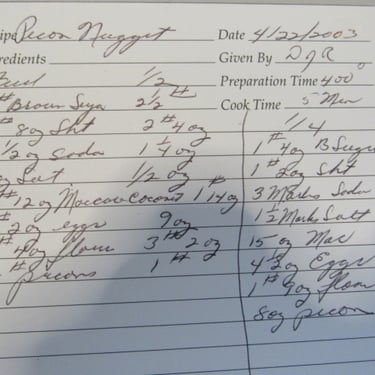 Recipe Pecon Nugget Date 4/22/2003
Ingredients Given By DJR
Full 1/2 Preparation Time 400°
# Brown Suga 2 1/2 # Cook Time 5 Min
# 8oz Sht 2 # 4oz
1/2 oz Soda 1 1/4 oz
oz Salt 1/2 oz
# 12 oz Macaroon Coconut 1 # 14oz
# 2oz eggs 9oz
# 4oz flour 3 # 2oz
# pecans 1 #
1/4
1 # 4oz B Suga
1 # 2oz Sht
3 Marks Soda
1 1/2 Marks Salt
15 oz Mac
4 1/2 oz Eggs
1 # 9oz flour
8oz pecon